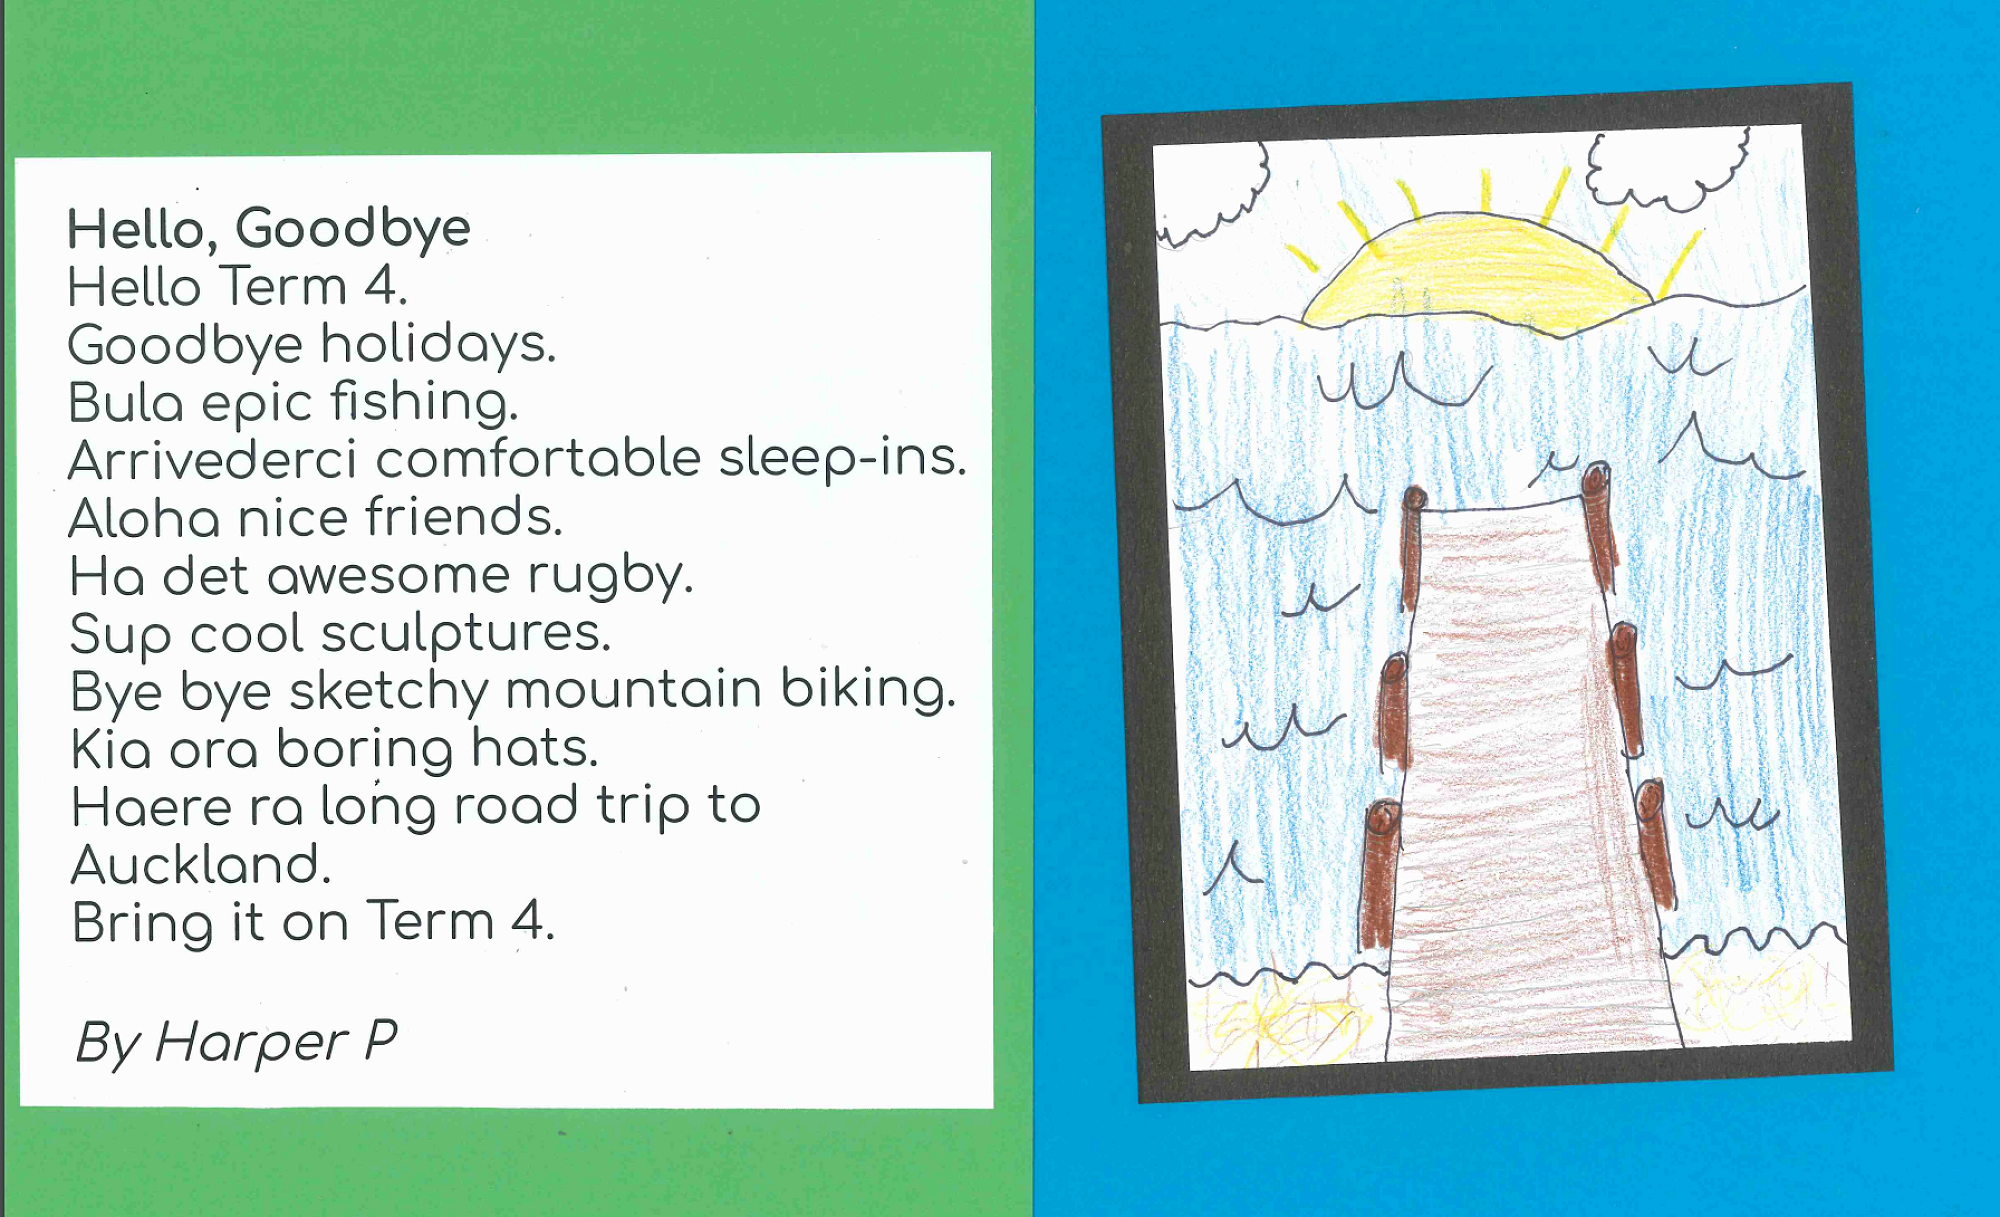 Hello, Goodbye
Hello Term 4.
Goodbye holidays.
Bula epic fishing.
Arrivederci comfortable sleep-ins.
Aloha nice friends.
Ha det awesome rugby.
Sup cool sculptures.
Bye bye sketchy mountain biking.
Kia ora boring hats.
Haere ra long road trip to
Auckland.
Bring it on Term 4.
By Harper P